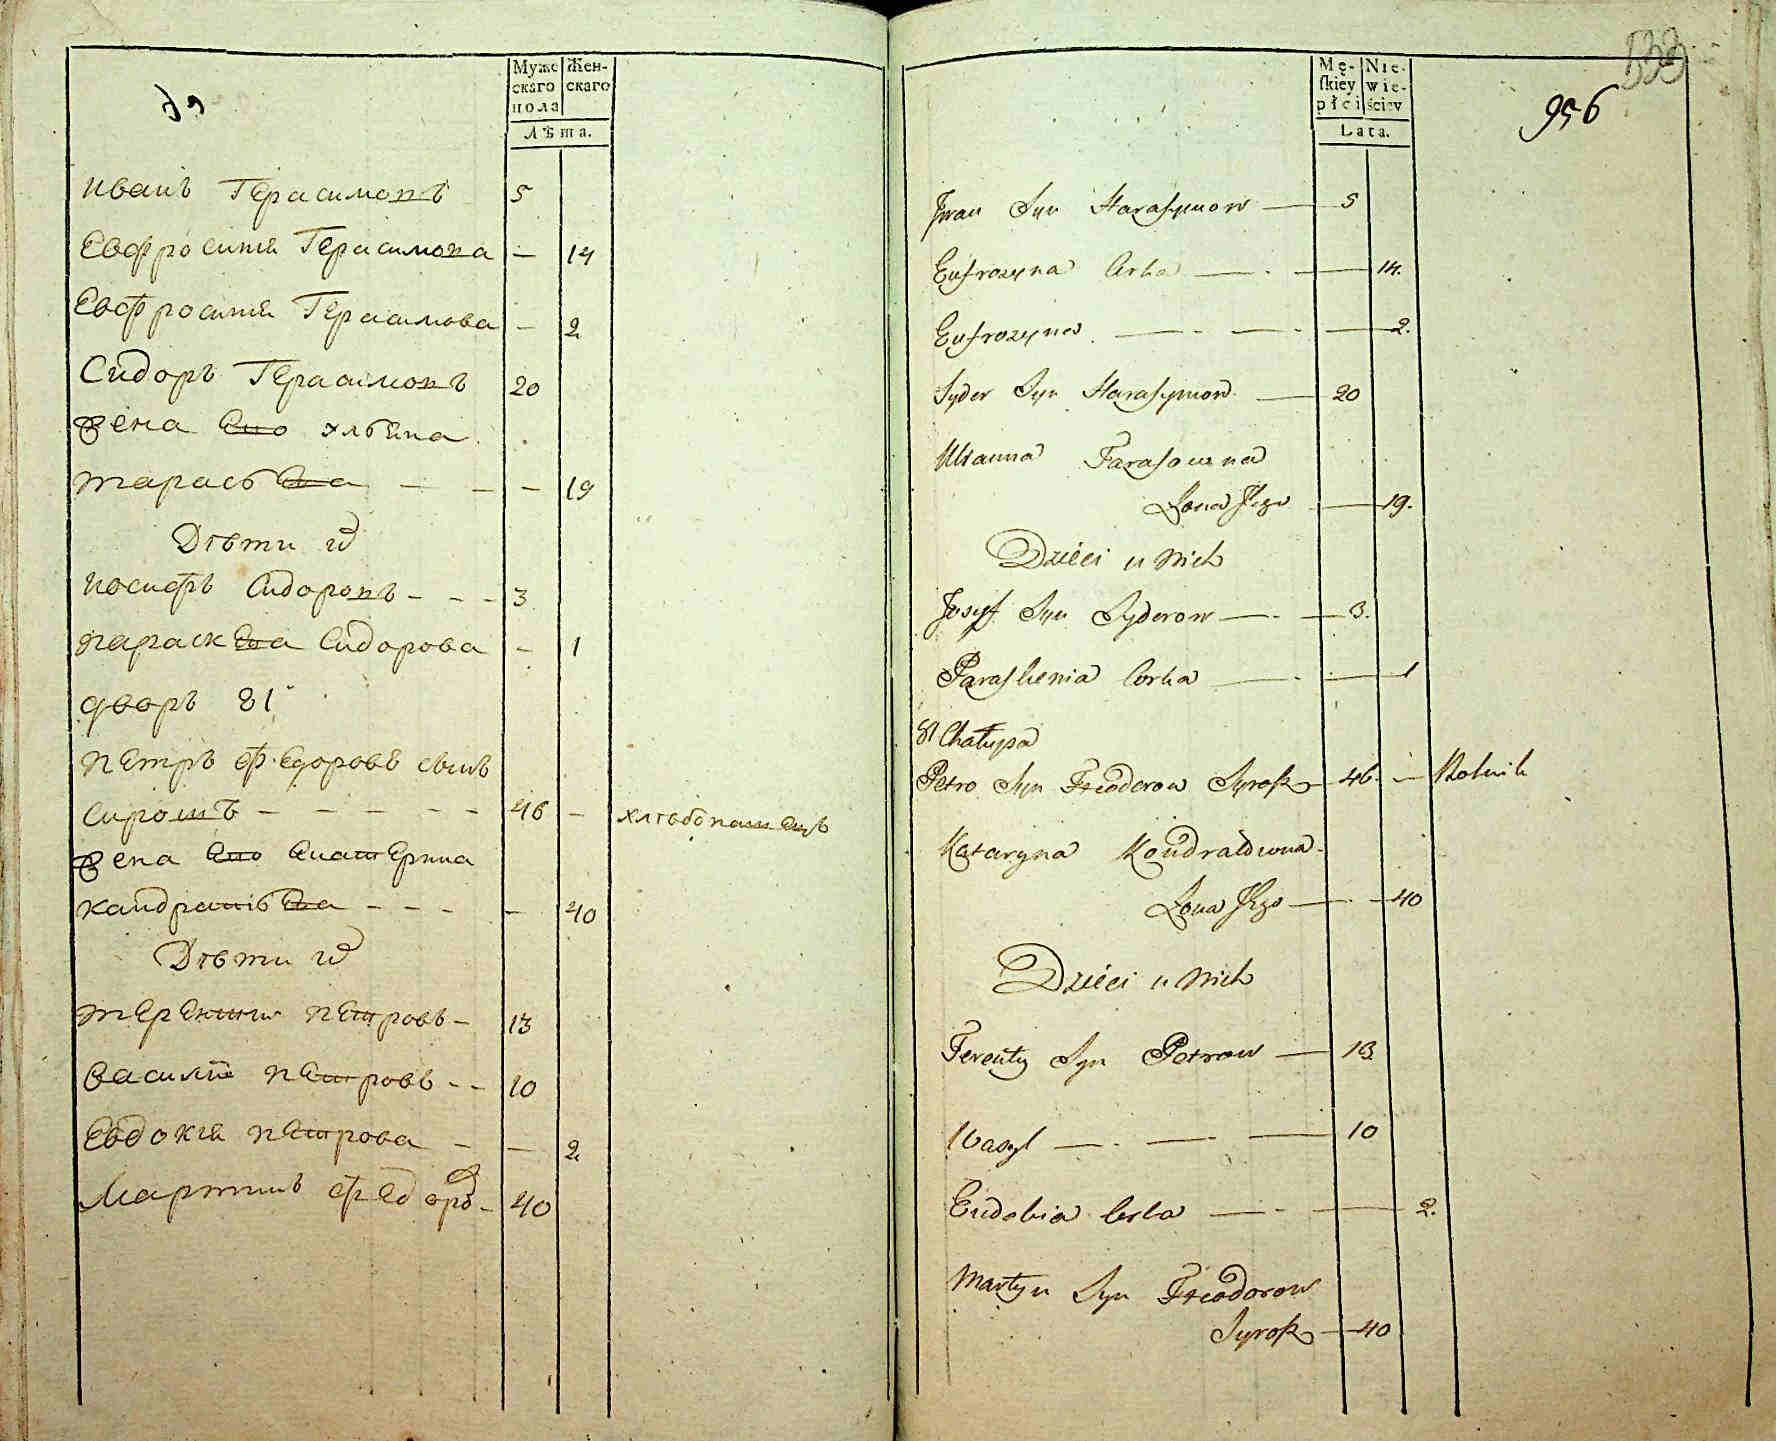 Муже Жен-
скаго скаго
пола
Лѣта.
Иванъ Герасимовъ 5
Евфросинiя Герасимова - 14
Евфросинiя Герасимова - 2
Сидоръ Герасимовъ 20
жена его
тарасѣева - - - 19
Дѣти их
иосифъ Сидоровъ - - - 3
параскева Сидорова - 1
дворъ 81
петръ Федоровъ сынъ
- - - - - 46 - хлѣбопашецъ
жена его екатерина
кандратѣева - - - - 40
Дѣти их
терентии петровъ - 13
василiй петровъ - - 10
Евдокiя петрова - - 2
Мартинъ федоро - 40
533
956
Mę- Nie-
skiey wie-
płci ściey
Lata.
Jwan Syn Harasymow 5
Eufrozyna Corka 14.
Eufrozyna 2.
Syder Syn Harasymow 20
Ulianna Tarasowna
Żona Jego 19.
Dzieci u Nich
Josyf Syn Syderow 3.
Paraskewia Corka 1
81 Chałupa
Petro Syn Fteoderow 46. Rolnik
Kataryna Kondratowna
Żona Jego 40
Dzieci u Nich
Terenty Syn Petrow 13
Wasyl 10
Eudokia Corka 2.
Martyn Syn Fteodorow
40